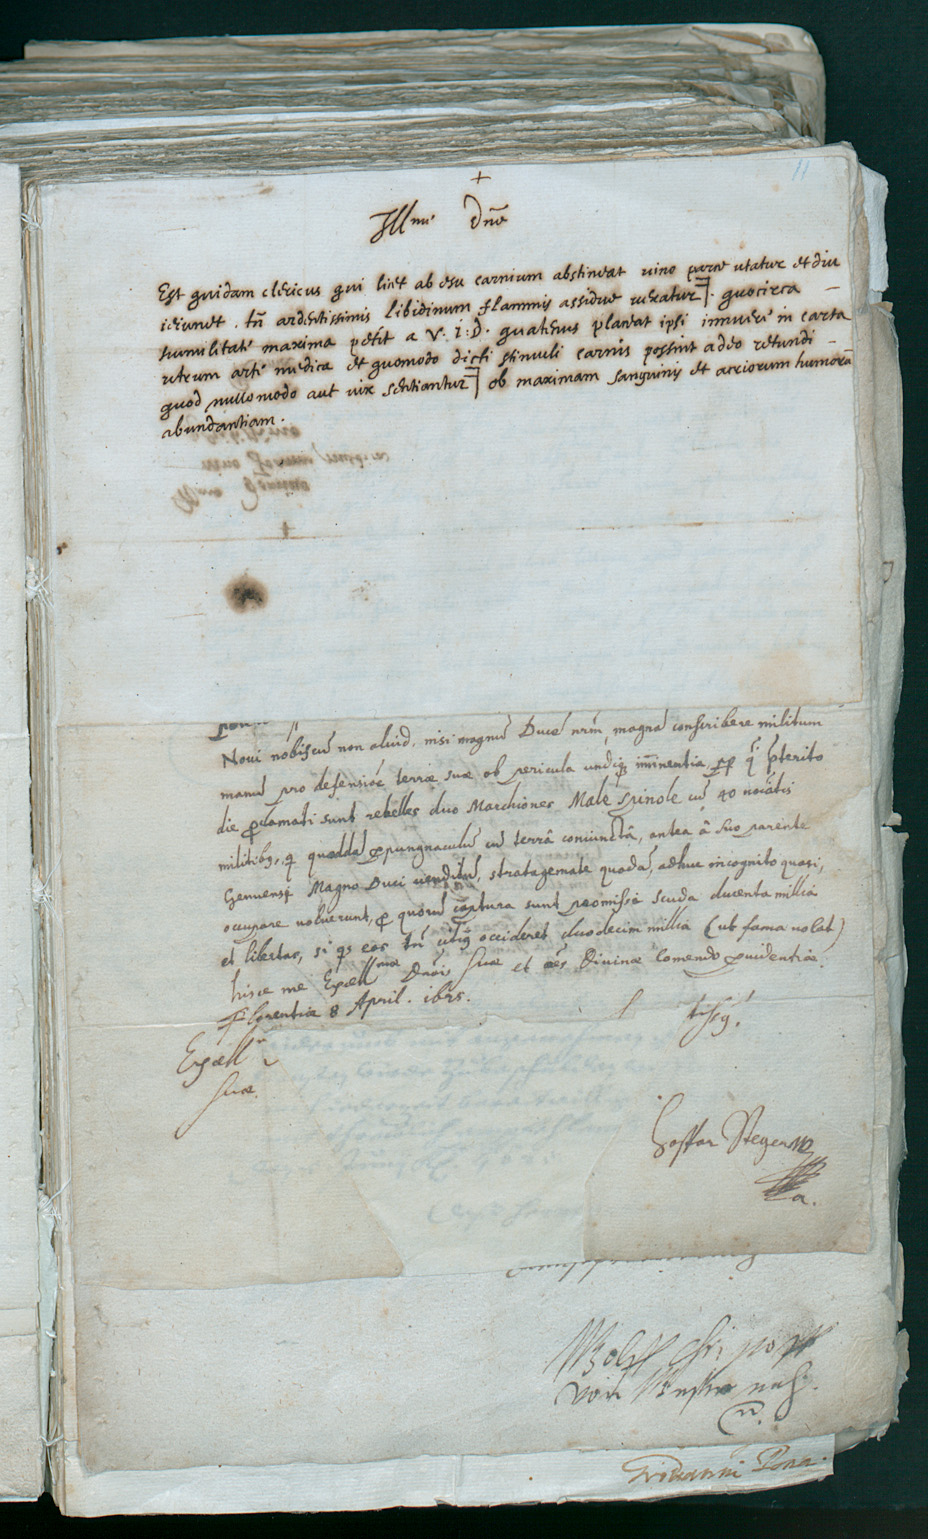 11
+
Jll^me Dn̄e
Est quidam clericus qui licet ab esu carnium abstineat uino parce utatur et diu
ieiunet . tn̄ ardentissimis libidinum flammis assidue uexatur . quocirca
humilitate maxima petit a V. i. D. quatenus placeat ipsi innuere in carta
utrum arte medica et quomodo dicti stimuli carnis possint adeo retundi
quod nullomodo aut uix sentiantur ob maximam sanguinis et acriorum humorū
abundantiam .
Noui nobiscū non aliud, nisi magnū Ducē nrm̄, magnā conscribere militum
manū pro defensiōe terræ suæ ob pericula undiq; im̄inentia, p̄terito
die p̄clamati sunt rebelles duo Marchiones Male Spinole cū 40
militibȝ, q̄ quoddā propungnaculū cū terrâ coniunctâ, antea â suo parente
Genuensi Magno Duci uenditū, stratagemate quodā, adhuc incognito quasi,
ocupare uoluerunt, p̄ quorū captura sunt promissa scuda ducenta millia
et libertas, si qs eos tn̄ occideret duodecim millia (ut fama uolat)
hisce me Excell^mæ Dnōi suæ et Diuinæ comendo prouidentiæ.
Florentiæ 8 April.
Excell^æ
suæ
Steger
Wolff
von
Giouanni